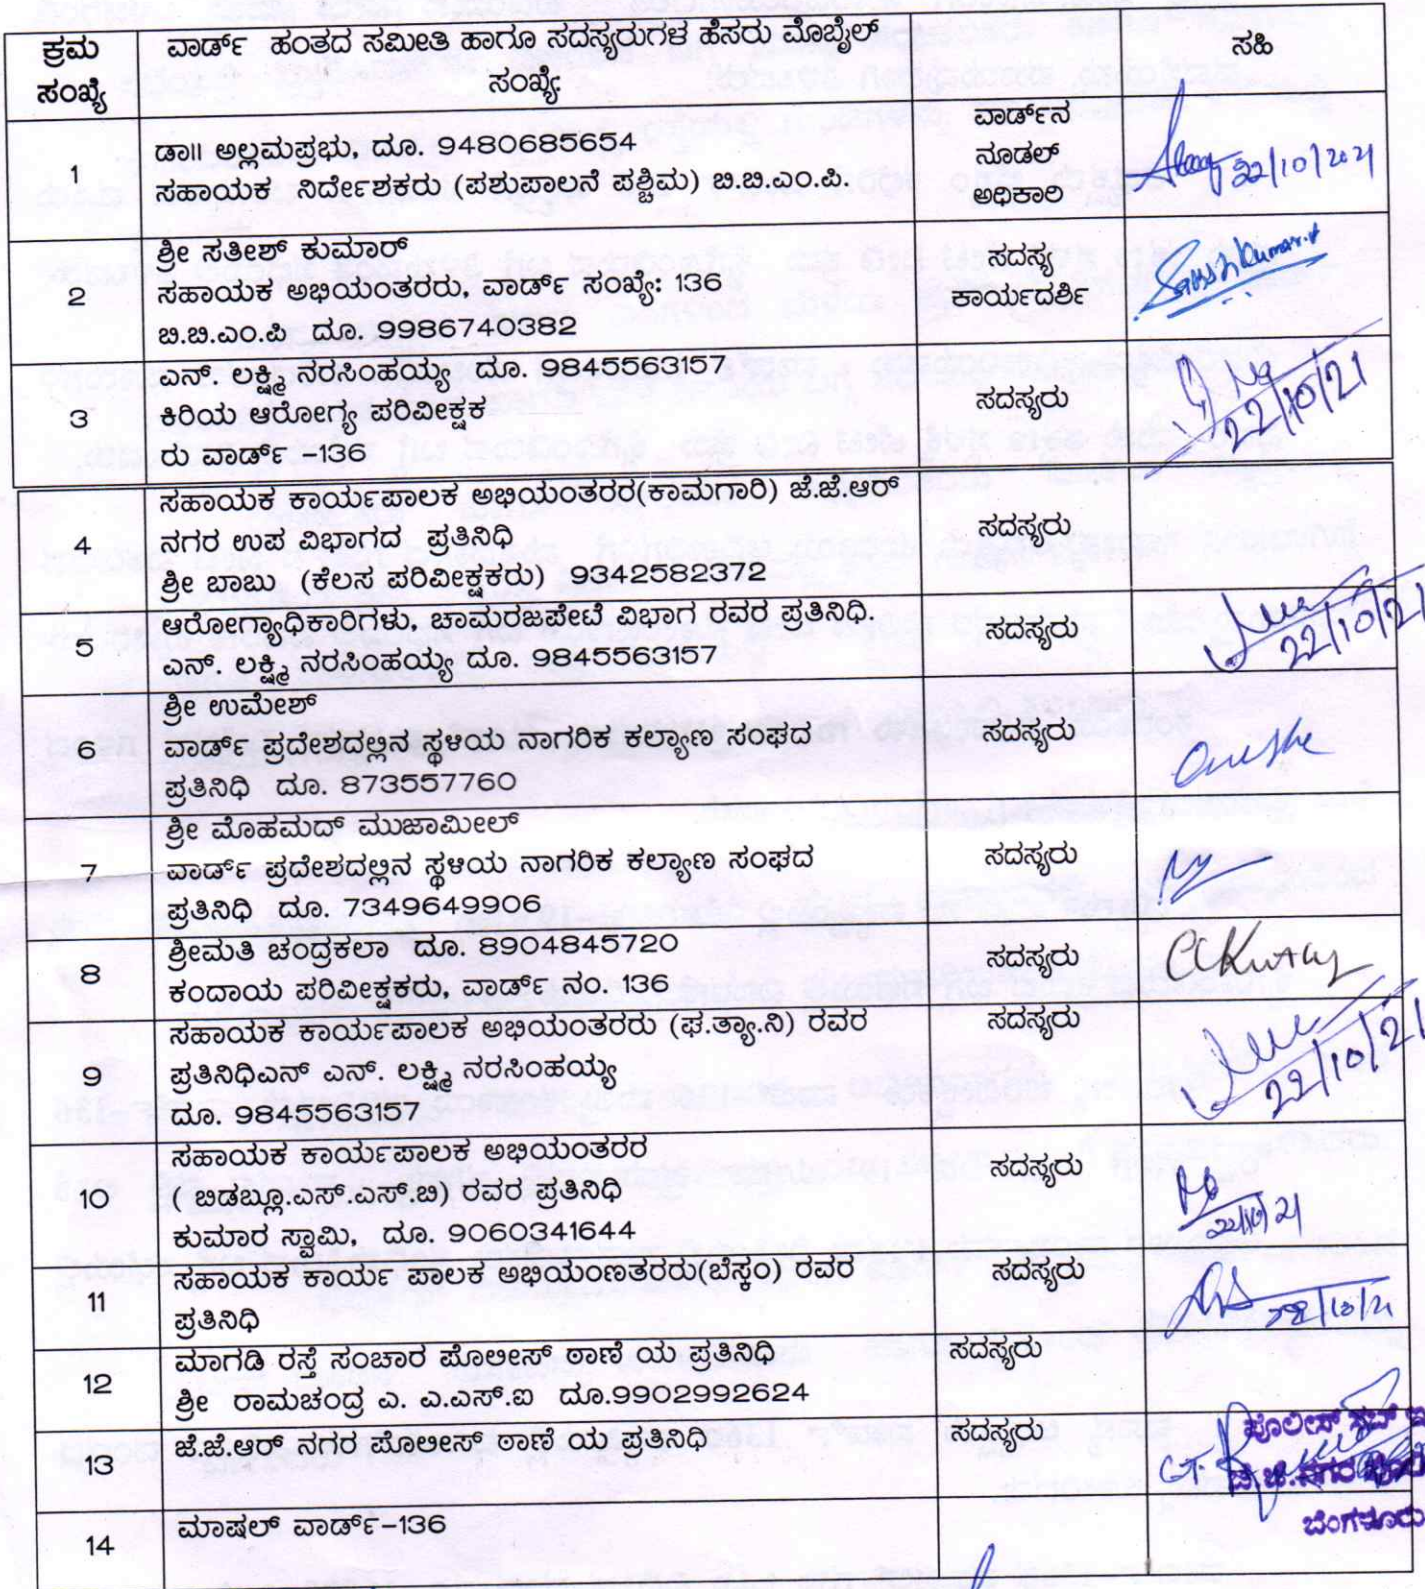 ಕ್ರಮ ಸಂಖ್ಯೆ
ವಾರ್ಡ್ ಹಂತದ ಸಮೀತಿ ಹಾಗೂ ಸದಸ್ಯರುಗಳ ಹೆಸರು ಮೊಬೈಲ್
ಸಂಖ್ಯೆ:
ಸಹಿ
1
ಡಾ॥ ಅಲ್ಲಮಪ್ರಭು, ದೂ. 9480685654
ಸಹಾಯಕ ನಿರ್ದೇಶಕರು (ಪಶುಪಾಲನೆ ಪಶ್ಚಿಮ) ಬಿ.ಬಿ.ಎಂ.ಪಿ.
ವಾರ್ಡ್‌ನ
ನೂಡಲ್
ಅಧಿಕಾರಿ
22/10/2021
2
ಶ್ರೀ ಸತೀಶ್ ಕುಮಾರ್
ಸಹಾಯಕ ಅಭಿಯಂತರರು, ವಾರ್ಡ್ ಸಂಖ್ಯೆ: 136
ಬಿ.ಬಿ.ಎಂ.ಪಿ ದೂ. 9986740382
ಸದಸ್ಯ
ಕಾರ್ಯದರ್ಶಿ
3
ಎನ್. ಲಕ್ಷ್ಮಿ ನರಸಿಂಹಯ್ಯ ದೂ. 9845563157
ಕಿರಿಯ ಆರೋಗ್ಯ ಪರಿವೀಕ್ಷಕ
ರು ವಾರ್ಡ್ -136
ಸದಸ್ಯರು
22/10/21
4
ಸಹಾಯಕ ಕಾರ್ಯಪಾಲಕ ಅಭಿಯಂತರರ(ಕಾಮಗಾರಿ) ಜೆ.ಜೆ.ಆರ್
ನಗರ ಉಪ ವಿಭಾಗದ ಪ್ರತಿನಿಧಿ
ಶ್ರೀ ಬಾಬು (ಕೆಲಸ ಪರಿವೀಕ್ಷಕರು) 9342582372
ಸದಸ್ಯರು
5
ಆರೋಗ್ಯಾಧಿಕಾರಿಗಳು, ಚಾಮರಜಪೇಟೆ ವಿಭಾಗ ರವರ ಪ್ರತಿನಿಧಿ.
ಎನ್. ಲಕ್ಷ್ಮಿ ನರಸಿಂಹಯ್ಯ ದೂ. 9845563157
ಸದಸ್ಯರು
22/10/21
6
ಶ್ರೀ ಉಮೇಶ್
ವಾರ್ಡ್ ಪ್ರದೇಶದಲ್ಲಿನ ಸ್ಥಳಿಯ ನಾಗರಿಕ ಕಲ್ಯಾಣ ಸಂಘದ
ಪ್ರತಿನಿಧಿ ದೂ. 873557760
ಸದಸ್ಯರು
7
ಶ್ರೀ ಮೊಹಮದ್ ಮುಜಾಮೀಲ್
ವಾರ್ಡ್ ಪ್ರದೇಶದಲ್ಲಿನ ಸ್ಥಳಿಯ ನಾಗರಿಕ ಕಲ್ಯಾಣ ಸಂಘದ
ಪ್ರತಿನಿಧಿ ದೂ. 7349649906
ಸದಸ್ಯರು
8
ಶ್ರೀಮತಿ ಚಂದ್ರಕಲಾ ದೂ. 8904845720
ಕಂದಾಯ ಪರಿವೀಕ್ಷಕರು, ವಾರ್ಡ್ ನಂ. 136
ಸದಸ್ಯರು
9
ಸಹಾಯಕ ಕಾರ್ಯಪಾಲಕ ಅಭಿಯಂತರರು (ಘ.ತ್ಯಾ.ನಿ) ರವರ
ಪ್ರತಿನಿಧಿಎನ್ ಎನ್. ಲಕ್ಷ್ಮಿ ನರಸಿಂಹಯ್ಯ
ದೂ. 9845563157
ಸದಸ್ಯರು
22/10/21
10
ಸಹಾಯಕ ಕಾರ್ಯಪಾಲಕ ಅಭಿಯಂತರರ
( ಬಿಡಬ್ಲೂ.ಎಸ್.ಎಸ್.ಬಿ) ರವರ ಪ್ರತಿನಿಧಿ
ಕುಮಾರ ಸ್ವಾಮಿ, ದೂ. 9060341644
ಸದಸ್ಯರು
11
ಸಹಾಯಕ ಕಾರ್ಯ ಪಾಲಕ ಅಭಿಯಂಣತರರು(ಬೆಸ್ಕಂ) ರವರ
ಪ್ರತಿನಿಧಿ
ಸದಸ್ಯರು
22/10/21
12
ಮಾಗಡಿ ರಸ್ತೆ ಸಂಚಾರ ಪೊಲೀಸ್ ಠಾಣೆ ಯ ಪ್ರತಿನಿಧಿ
ಶ್ರೀ ರಾಮಚಂದ್ರ ಎ. ಎ.ಎಸ್.ಐ ದೂ.9902992624
ಸದಸ್ಯರು
13
ಜೆ.ಜೆ.ಆರ್ ನಗರ ಪೊಲೀಸ್ ಠಾಣೆ ಯ ಪ್ರತಿನಿಧಿ
ಸದಸ್ಯರು
ಪೊಲೀಸ್ ಸಬ್
ಬೆಂಗಳೂರು
14
ಮಾಷಲ್ ವಾರ್ಡ್-136